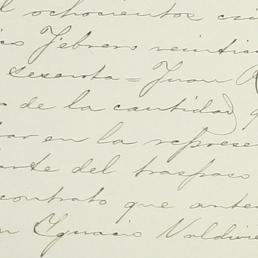 l ochocientos cin
cio Febrero veintici
sesenta = Juan R
de la cantidad q
ar en la represe
arte del traspaso
contrato que ante
n Ygnacio Valdivie